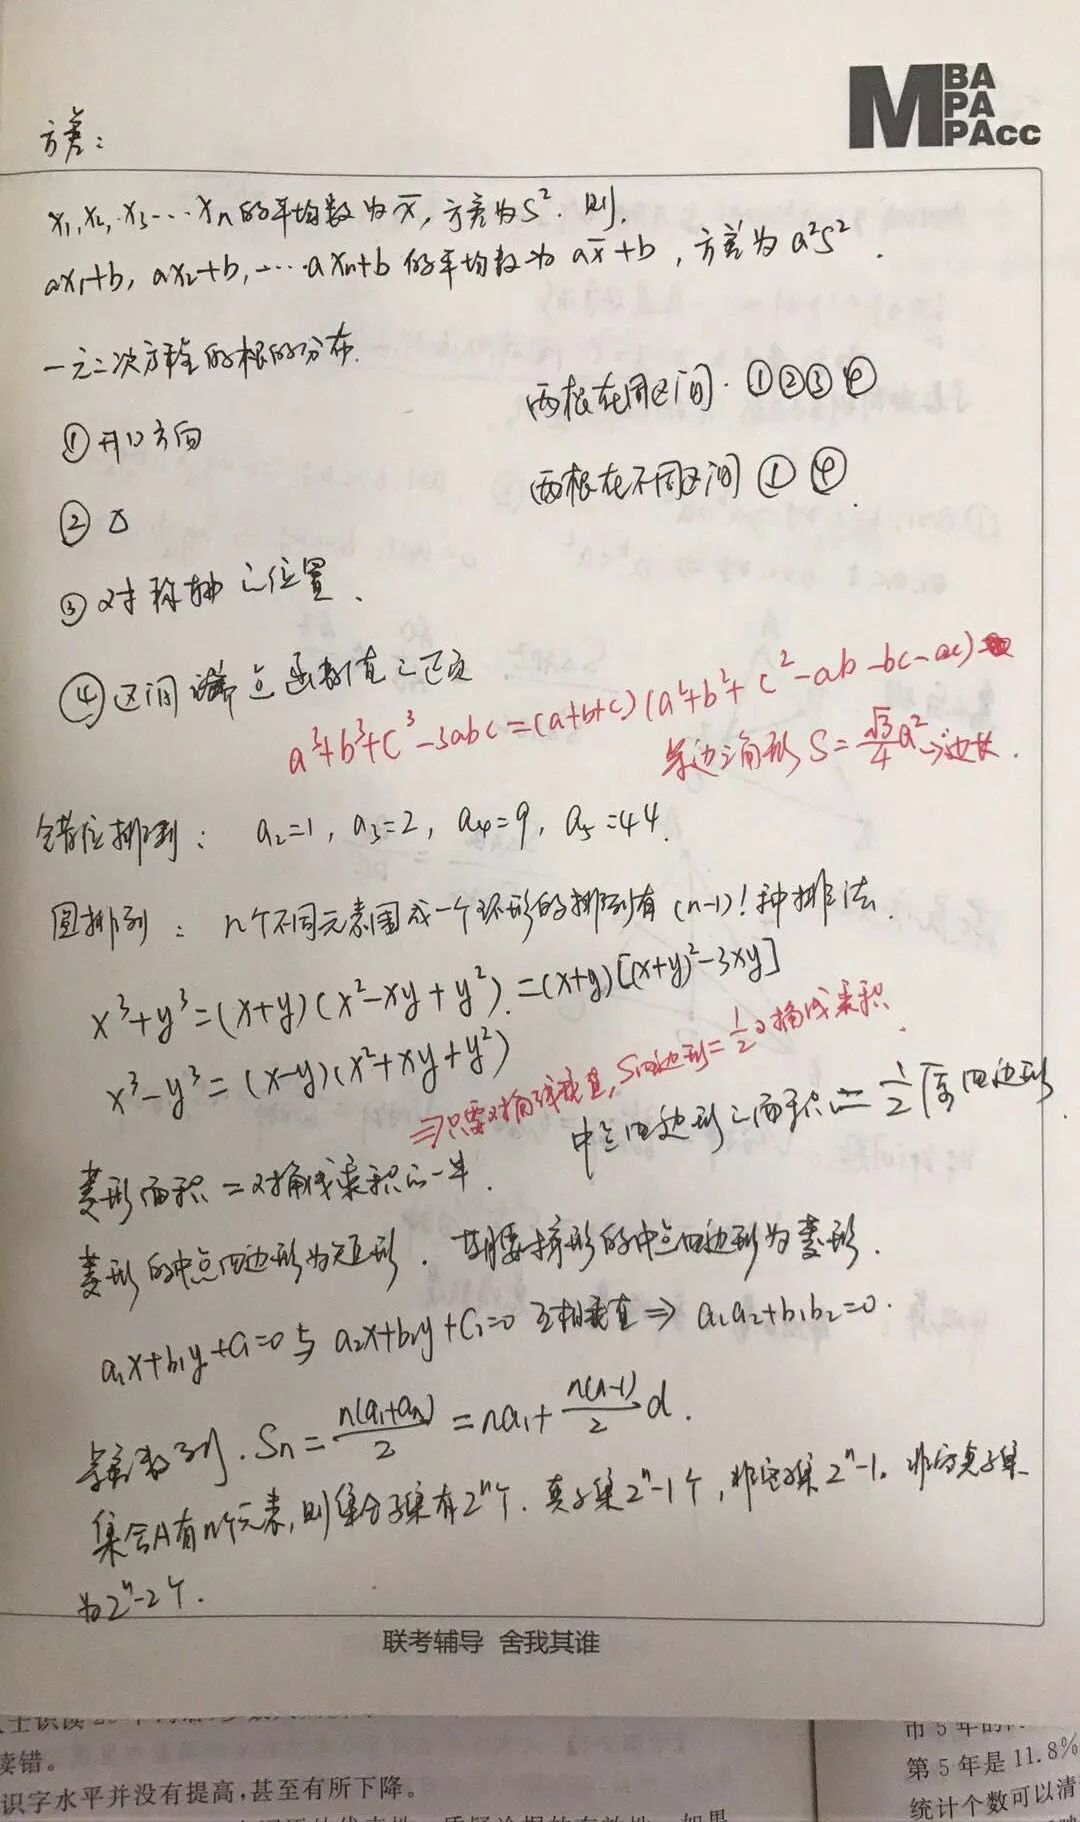 MBA
PA
PAcc
方差：
x₁,x₂,x₃…xₙ的平均数为x̄,方差为S².则.
ax₁+b, ax₂+b,…axₙ+b的平均数为ax̄+b,方差为a²S².
一元二次方程的根的分布.
两根在同区间.①②③④
①开口方向
两根在不同区间①④.
②△
③对称轴之位置、
④区间端点函数值之正负
a³+b³+c³-3abc=(a+b+c)(a²+b²+c²-ab-bc-ac)
等边三角形S=√3/4a²→边长.
错位排列：a₂=1, a₃=2, a₄=9, a₅=44.
圆排列：n个不同元素围成一个环形的排列有(n-1)!种排法.
x³+y³=(x+y)(x²-xy+y²).=(x+y)[(x+y)²-3xy]
x³-y³=(x-y)(x²+xy+y²)
⇒只需对角线垂直,S四边形=1/2对角线乘积.
中点四边形之面积=1/2原四边形
菱形面积=对角线乘积的一半.
菱形的中点四边形为矩形.等腰梯形的中点四边形为菱形.
a₁x+b₁y+c₁=0与a₂x+b₂y+c₂=0互相垂直⇒a₁a₂+b₁b₂=0.
等差数列.Sₙ=n(a₁+aₙ)/2=na₁+n(n-1)/2d.
集合A有n个元素,则集合子集有2ⁿ个.真子集2ⁿ-1个,非空子集2ⁿ-1.非空真子集
为2ⁿ-2个.
联考辅导 舍我其谁
读错。
识字水平并没有提高,甚至有所下降。
市5年的
第5年是11.8%
统计个数可以清